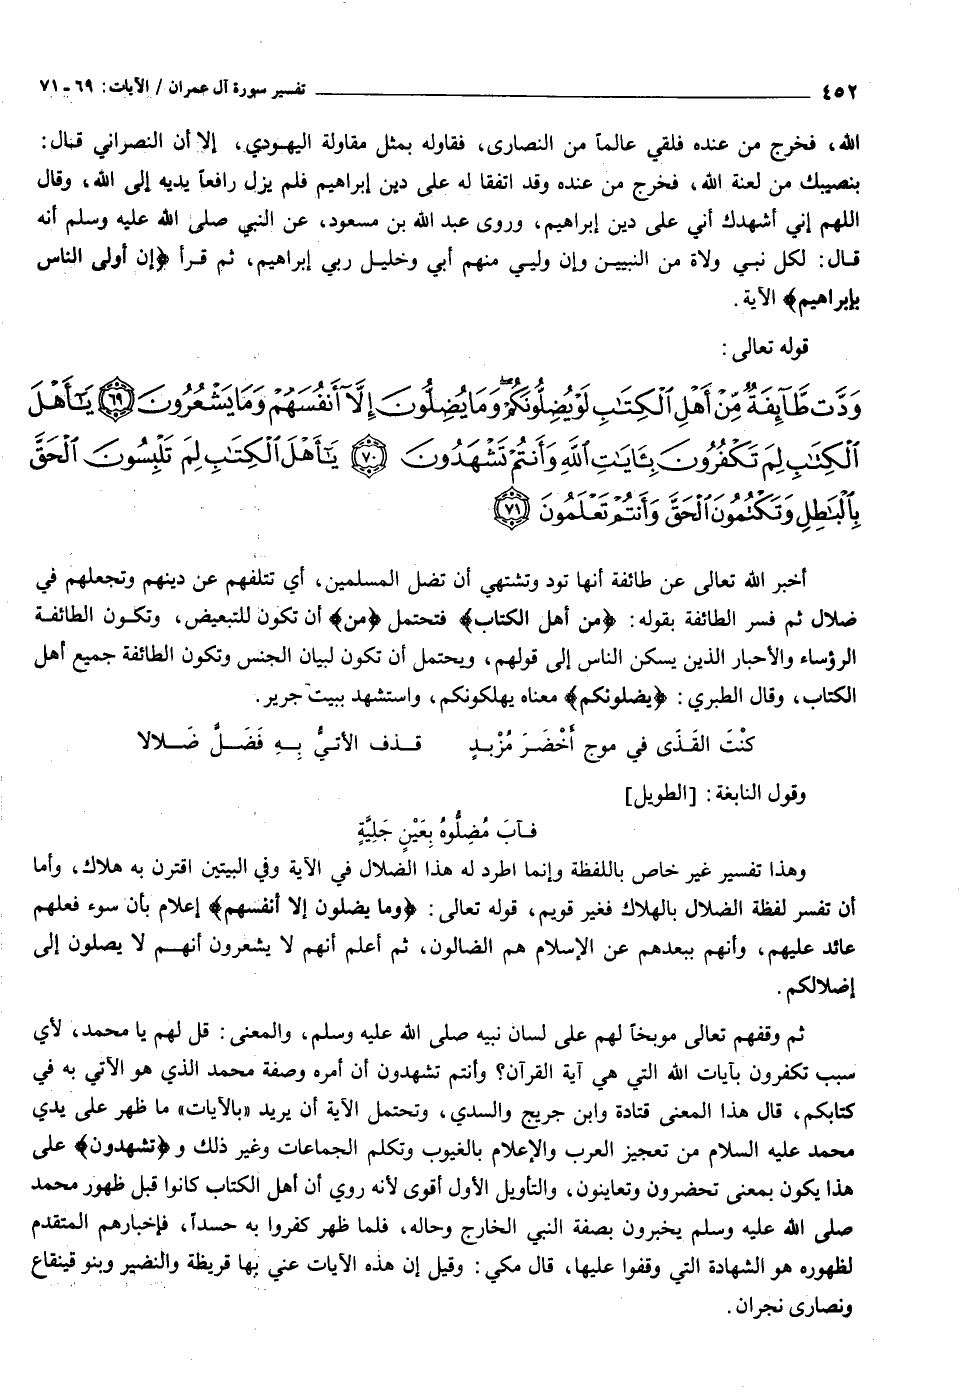 ٤٥٢ ــــــــــ تفسير سورة آل عمران / الآيات: ٦٩ - ٧١
الله، فخرج من عنده فلقي عالماً من النصارى، فقاوله بمثل مقاولة اليهودي، إلا أن النصراني قال:
بنصيبك من لعنة الله، فخرج من عنده وقد اتفقا له على دين إبراهيم فلم يزل رافعاً يديه إلى الله، وقال
اللهم إني أشهدك أني على دين إبراهيم، وروى عبد الله بن مسعود، عن النبي صلى الله عليه وسلم أنه
قال: لكل نبي ولاة من النبيين وإن وليي منهم أبي وخليل ربي إبراهيم، ثم قرأ ﴿إن أولى الناس
بإبراهيم﴾ الآية.
قوله تعالى:
وَدَّت طَّآئِفَةٌ مِّنْ أَهْلِ ٱلْكِتَٰبِ لَوْ يُضِلُّونَكُمْ وَمَا يُضِلُّونَ إِلَّآ أَنفُسَهُمْ وَمَا يَشْعُرُونَ ﴿٦٩﴾ يَٰٓأَهْلَ
ٱلْكِتَٰبِ لِمَ تَكْفُرُونَ بِـَٔايَٰتِ ٱللَّهِ وَأَنتُمْ تَشْهَدُونَ ﴿٧٠﴾ يَٰٓأَهْلَ ٱلْكِتَٰبِ لِمَ تَلْبِسُونَ ٱلْحَقَّ
بِٱلْبَٰطِلِ وَتَكْتُمُونَ ٱلْحَقَّ وَأَنتُمْ تَعْلَمُونَ ﴿٧١﴾
أخبر الله تعالى عن طائفة أنها تود وتشتهي أن تضل المسلمين، أي تتلفهم عن دينهم وتجعلهم في
ضلال ثم فسر الطائفة بقوله: ﴿من أهل الكتاب﴾ فتحتمل ﴿من﴾ أن تكون للتبعيض، وتكون الطائفة
الرؤساء والأحبار الذين يسكن الناس إلى قولهم، ويحتمل أن تكون لبيان الجنس وتكون الطائفة جميع أهل
الكتاب، وقال الطبري: ﴿يضلونكم﴾ معناه يهلكونكم، واستشهد ببيت جرير.
كنْتَ القَذَى في موج أَخْضَرَ مُزْبدٍ قذف الأتيُّ بِهِ فَضَلَّ ضَلالا
وقول النابغة: [الطويل]
فآبَ مُضِلُّوهُ بِعَيْنٍ جَلِيَّةٍ
وهذا تفسير غير خاص باللفظة وإنما اطرد له هذا الضلال في الآية وفي البيتين اقترن به هلاك، وأما
أن تفسر لفظة الضلال بالهلاك فغير قويم، قوله تعالى: ﴿وما يضلون إلا أنفسهم﴾ إعلام بأن سوء فعلهم
عائد عليهم، وأنهم ببعدهم عن الإسلام هم الضالون، ثم أعلم أنهم لا يشعرون أنهم لا يصلون إلى
إضلالكم.
ثم وقفهم تعالى موبخاً لهم على لسان نبيه صلى الله عليه وسلم، والمعنى: قل لهم يا محمد، لأي
سبب تكفرون بآيات الله التي هي آية القرآن؟ وأنتم تشهدون أن أمره وصفة محمد الذي هو الآتي به في
كتابكم، قال هذا المعنى قتادة وابن جريج والسدي، وتحتمل الآية أن يريد «بالآيات» ما ظهر على يدي
محمد عليه السلام من تعجيز العرب والإعلام بالغيوب وتكلم الجماعات وغير ذلك و﴿تشهدون﴾ على
هذا يكون بمعنى تحضرون وتعاينون، والتأويل الأول أقوى لأنه روي أن أهل الكتاب كانوا قبل ظهور محمد
صلى الله عليه وسلم يخبرون بصفة النبي الخارج وحاله، فلما ظهر كفروا به حسداً، فإخبارهم المتقدم
لظهوره هو الشهادة التي وقفوا عليها، قال مكي: وقيل إن هذه الآيات عني بها قريظة والنضير وبنو قينقاع
ونصارى نجران.